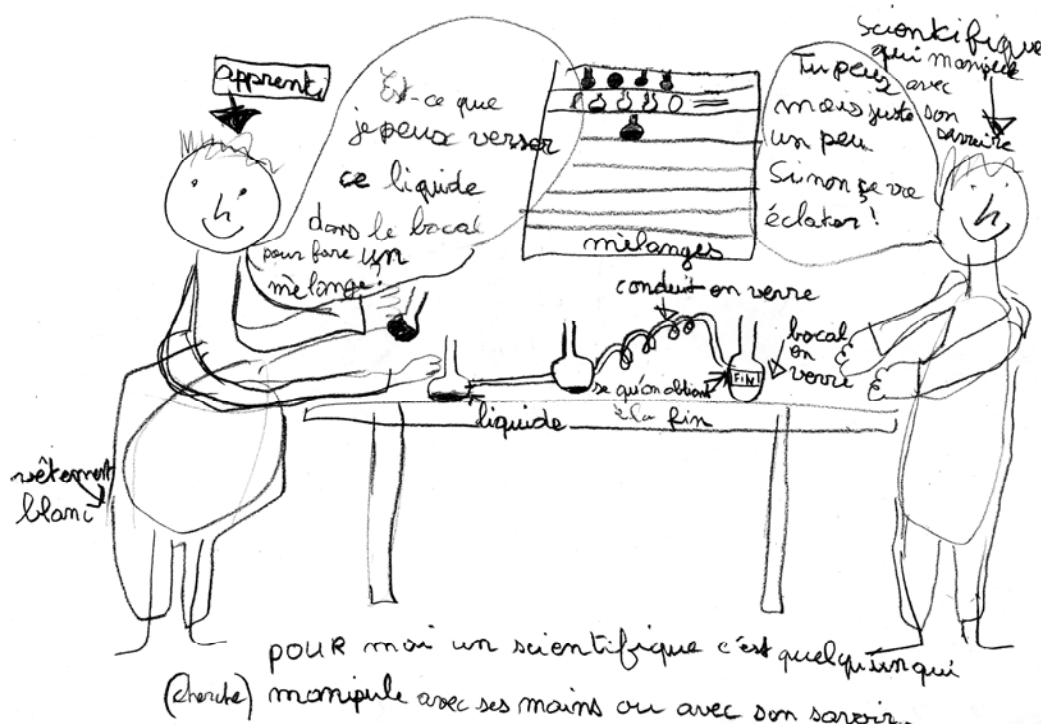 apprenti
Est-ce que
je peux verser
ce liquide
dans le bocal
pour faire un
mèlange?
mèlanges
Tu peux
mais juste
un peu.
Sinon ça va
éclater!
scientifique
qui manipule
avec
son
savoire
conduit en verre
bocal
en
verre
FINI
se qu'on obtient
à la fin
liquide
vêtement
blanc
POUR moi un scientifique c'est quelqu'un qui
(cherche) manipule avec ses mains ou avec son savoir.